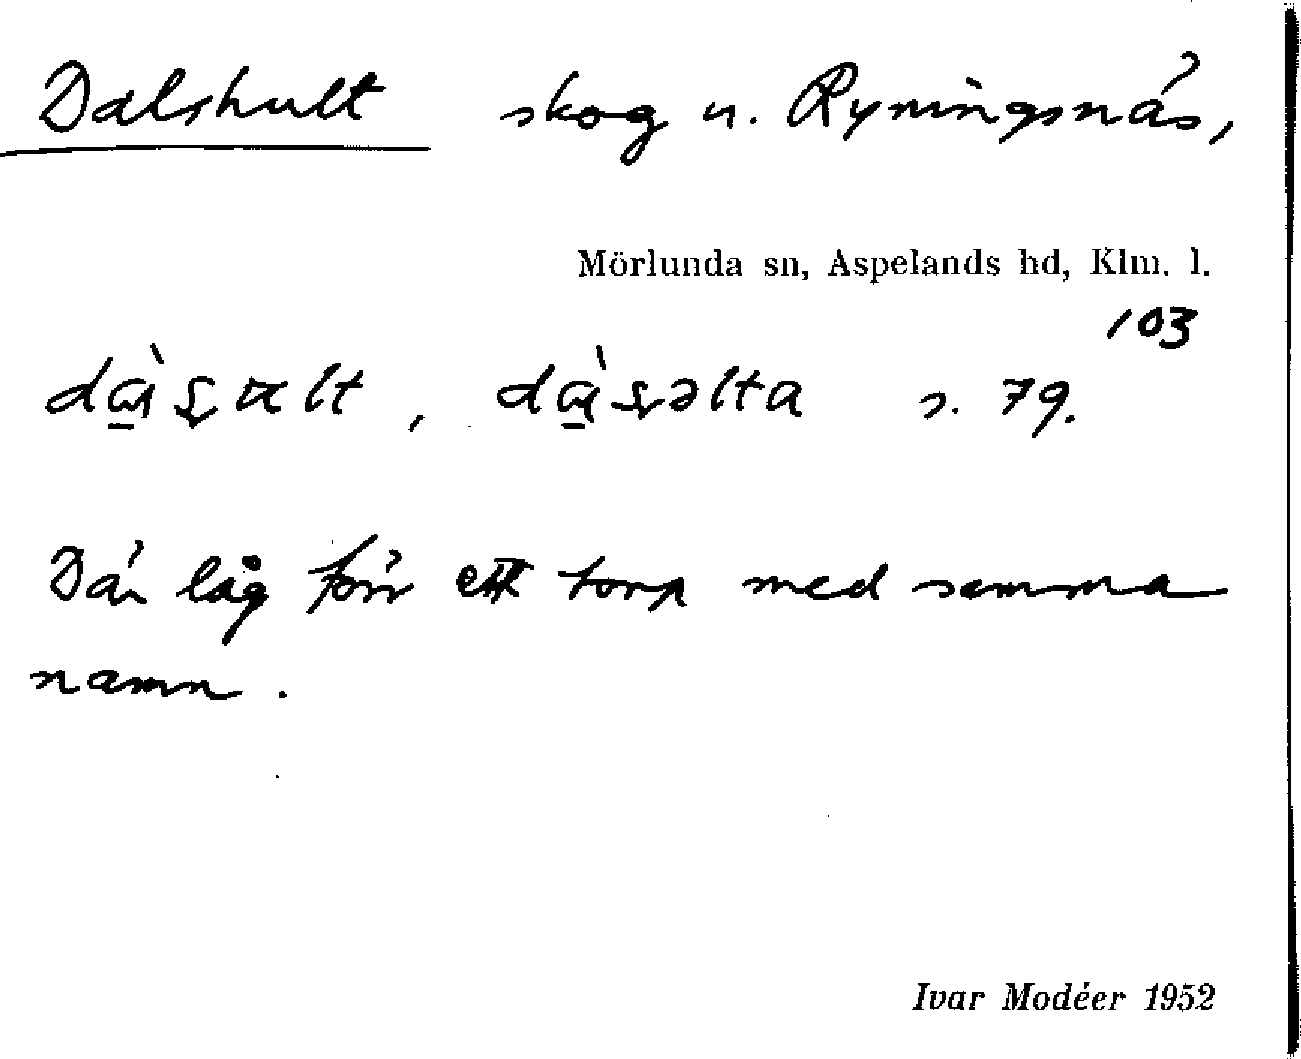 Dalshult skog u. Ryningsnäs,
Mörlunda sn, Aspelands hd, Klm. l.
103
s. 79.
Där låg förr ett torp med samma
namn.
Ivar Modéer 1952